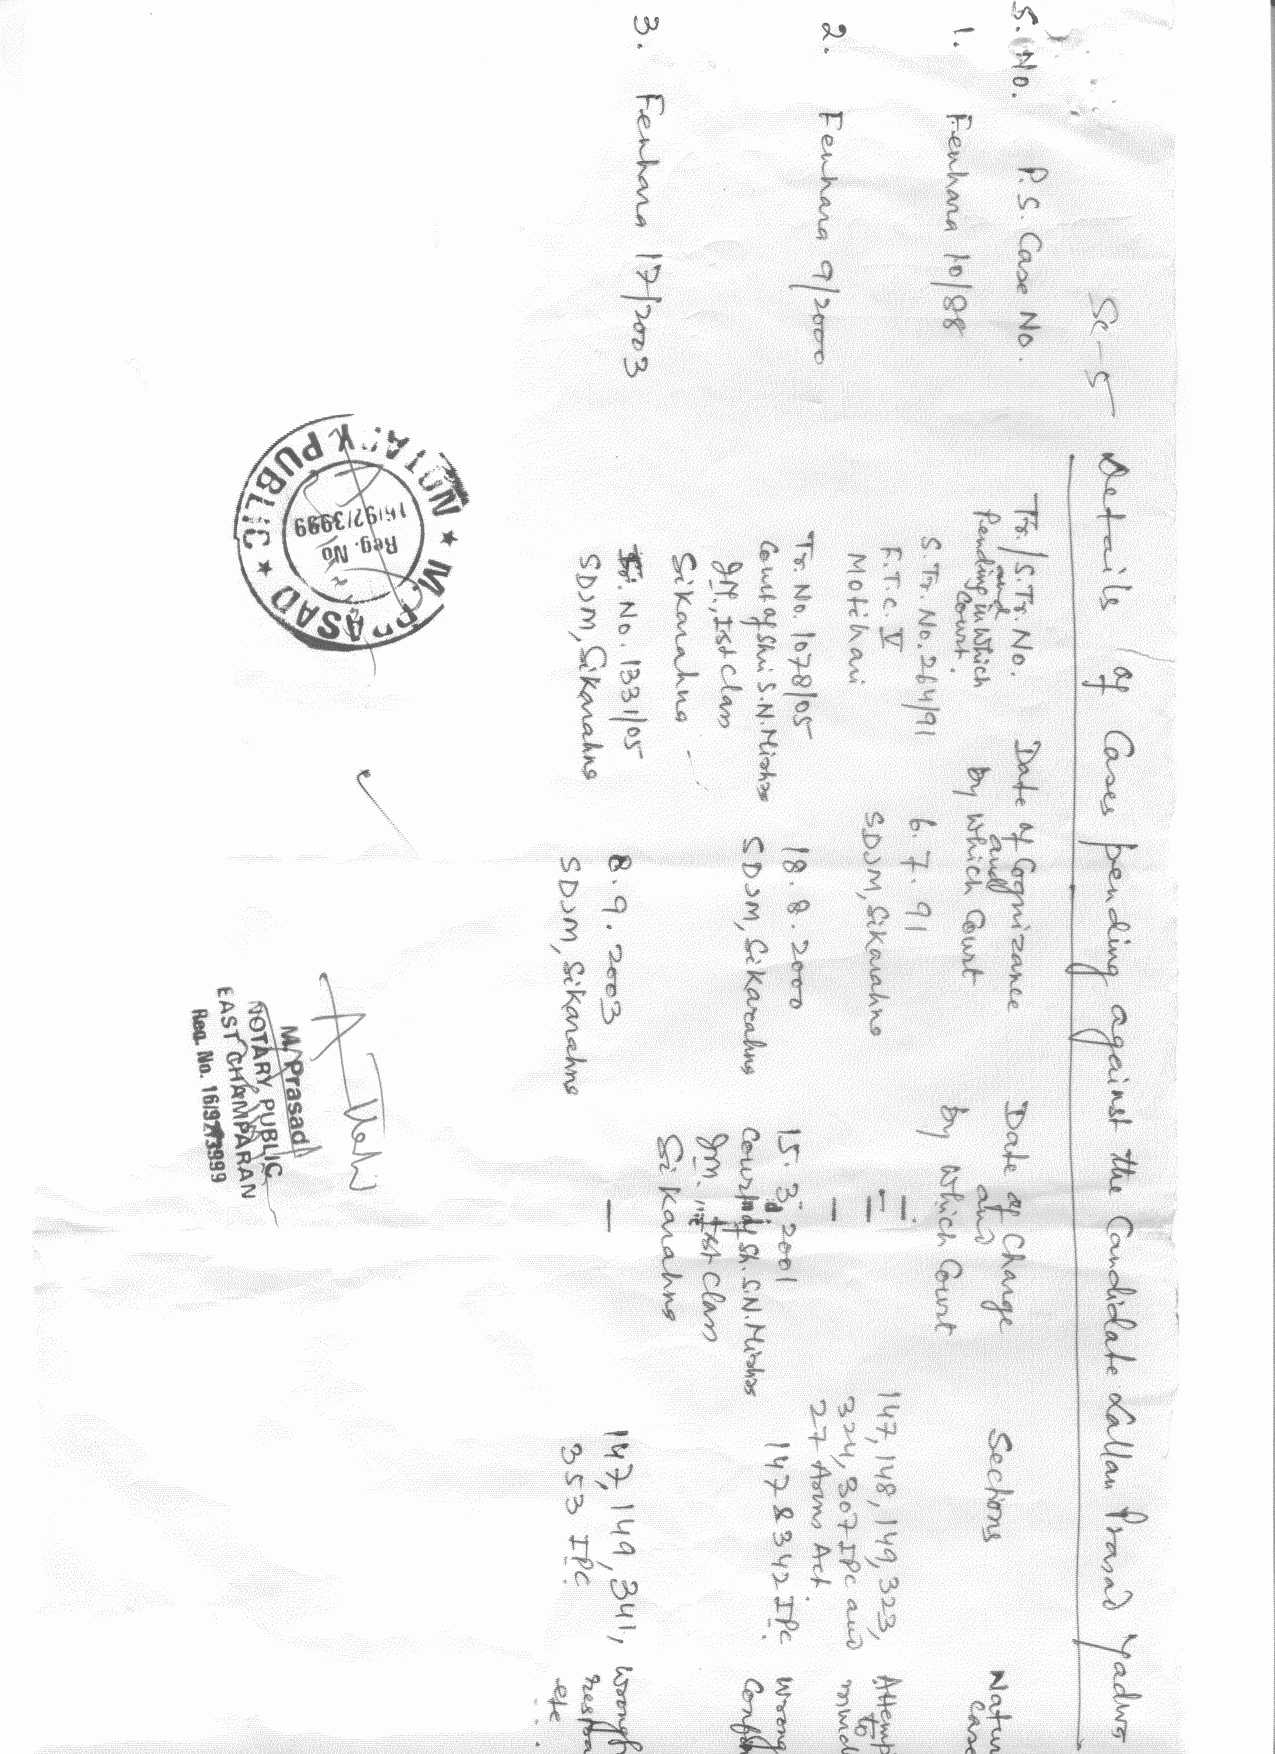 Sc-5
Details of Cases pending against the Candidate Lallan Prasad Yadava
S. No. P.S. Case No. Tr./S.Tr. No. Date of Cognizance Date of Charge Sections Natur
and and and Case
Pending in which by which Court by which Court
Court.
1. Fenhara 10/88 S.Tr. No. 264/91 6.7.91 — 147, 148, 149, 323, Attemp
F.T.C. V SDJM, Sikarahna — 324, 307 IPC and to
Motihari — 27 Arms Act. murd
2. Fenhara 9/2000 Tr. No. 1078/05 18.8.2000 15.3.2001 147 & 342 IPC. Wrong
Court of Shri S.N. Mishra SDJM, Sikarahna Court of Sh. S.N. Mishra Confin
JM., Ist Class JM. Ist Class
Sikarahna Sikarahna
3. Fenhara 17/2003 Tr. No. 1331/05 8.9.2003 — 147, 149, 341, Wrongf
SDJM, Sikarahna SDJM, Sikarahna 353 IPC restra
etc.
M. PRASAD ★ NOTARY PUBLIC ★
Reg. No
16/92/3999
M. Prasad
NOTARY PUBLIC
EAST CHAMPARAN
Reg. No. 16/92/3999